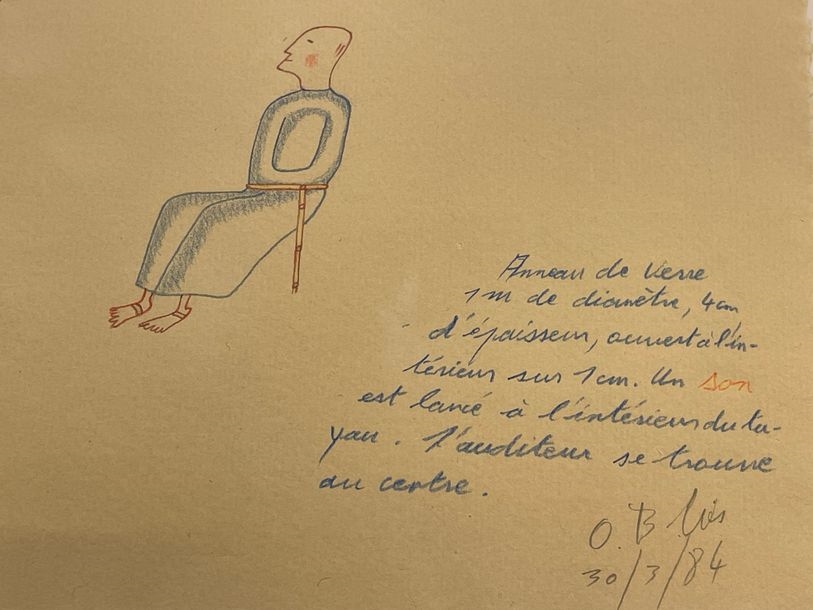 Anneau de verre
1m de diamètre, 4cm
d'épaisseur, ouvert à l'in-
térieur sur 1cm. Un son
est lancé à l'intérieur du tu-
yau. L'auditeur se trouve
au centre.
O. B.
30/3/84